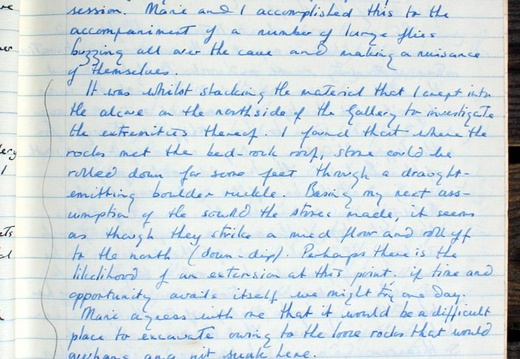 session. Marie and I accomplished this to the
accompaniment of a number of large flies
buzzing all over the cave and making a nuisance
of themselves.
It was whilst stacking the material that I crept into
the alcove on the northside of the Gallery to investigate
the extremities thereof. I found that where the
rocks met the bed-rock roof, stone could be
rolled down for some feet through a draught-
emitting boulder ruckle. Basing my next ass-
umption of the sound the stones made, it seems
as though they strike a mud floor and roll off
to the north (down-dip). Perhaps there is the
likelihood of an extension at this point. if time and
opportunity avails itself we might try one day.
Marie agrees with me that it would be a difficult
place to excavate owing to the loose rocks that would
overhang any pit sunk here.